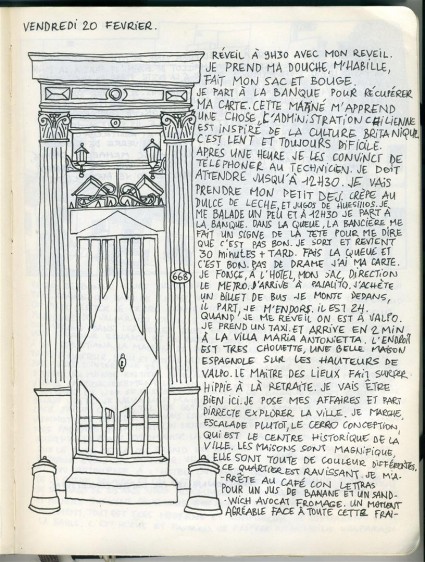 VENDREDI 20 FEVRIER.
REVEIL À 9H30 AVEC MON REVEIL.
JE PREND MA DOUCHE, M'HABILLE,
FAIT MON SAC ET BOUGE.
JE PART À LA BANQUE POUR RÉCUPÉRER
MA CARTE. CETTE MATINÉ M'APPREND
UNE CHOSE, L'ADMINISTRATION CHILIENNE
EST INSPIRÉ DE LA CULTURE BRITANIQUE
C'EST LENT ET TOUJOURS DIFICILE.
APRES UNE HEURE JE LES CONVINCT DE
TELEPHONER AU TECHNICIEN. JE DOIT
ATTENDRE JUSQU'À 12H30. JE VAIS
PRENDRE MON PETIT DEJ. CRÊPE AU
DULCE DE LECHE, ET JUGOS DE HUESILLOS. JE
ME BALADE UN PEU ET À 12H30 JE PART À
LA BANQUE. DANS LA QUEUE, LA BANCIÈRE ME
FAIT UN SIGNE DE LA TETE POUR ME DIRE
QUE C'EST PAS BON. JE SORT ET REVIENT
30 minutes + TARD. FAIS LA QUEUE ET
C'EST BON. PAS DE DRAME J'AI MA CARTE.
668 JE FONCE, À L'HÔTEL, MON SAC, DIRECTION
LE METRO. J'ARRIVE À PAJALITO, J'ACHÈTE
UN BILLET DE BUS JE MONTE DEDANS,
IL PART, JE M'ENDORS. IL EST 24.
QUAND JE ME REVEIL ON EST À VALPO.
JE PREND UN TAXI. ET ARRIVE EN 2 MIN
À LA VILLA MARIA ANTONIETTA. L'ENDROIT
EST TRES CHOUETTE, UNE BELLE MAISON
ESPAGNOLE SUR LES HAUTEURS DE
VALPO. LE MAITRE DES LIEUX FAIT SURFER
HIPPIE À LA RETRAITE. JE VAIS ÊTRE
BIEN ICI. JE POSE MES AFFAIRES ET PART
DIRRECTE EXPLORER LA VILLE. JE MARCHE,
ESCALADE PLUTÔT, LE CERRO CONCEPTION,
QUI EST LE CENTRE HISTORIQUE DE LA
VILLE. LES MAISONS SONT MAGNIFIQUE,
ELLE SONT TOUTE DE COULEUR DIFFÉRENTES.
CE QUARTIER EST RAVISSANT. JE M'A-
-RRÊTE AU CAFÉ CON LETTRAS
POUR UN JUS DE BANANE ET UN SAND-
-WICH AVOCAT FROMAGE. UN MOMENT
AGRÉABLE FACE À TOUTE CETTE FRAI-